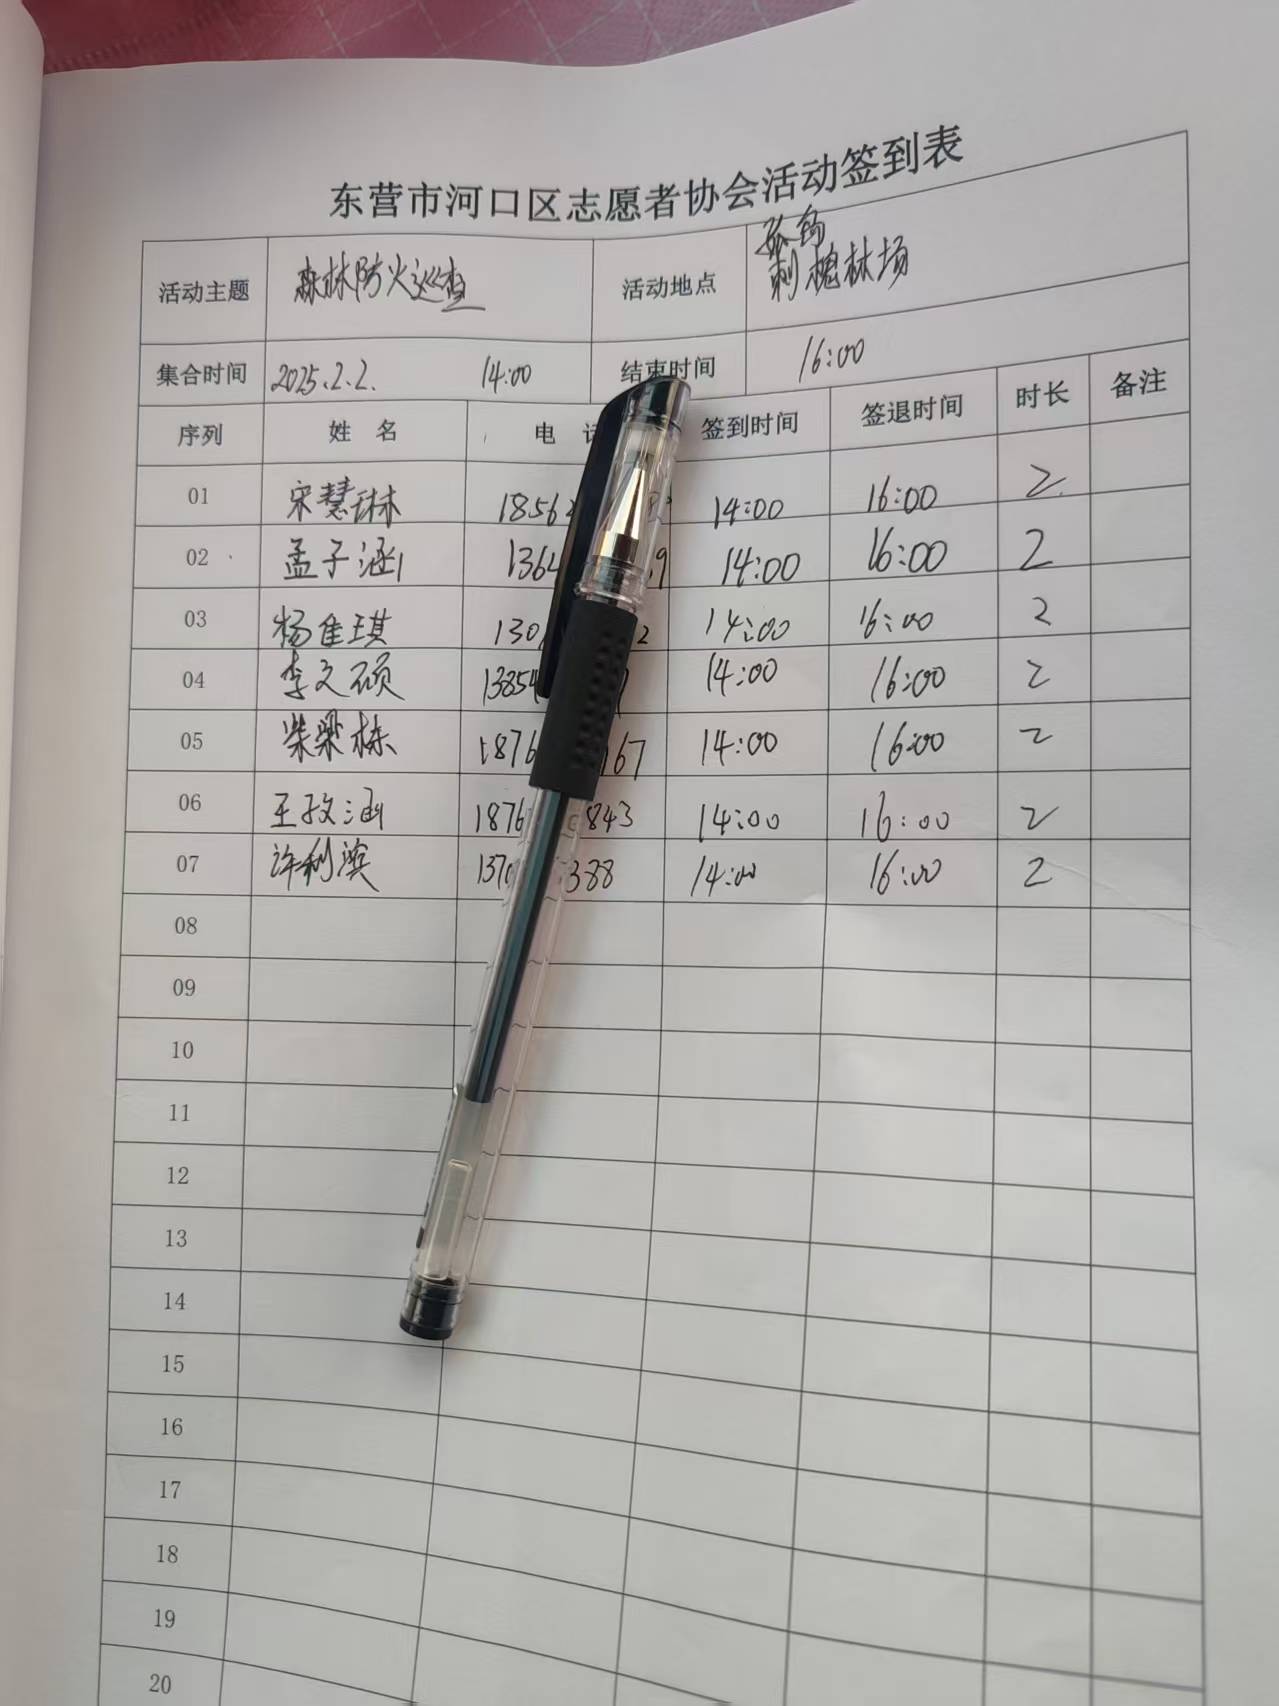 东营市河口区志愿者协会活动签到表
活动主题 森林防火巡查 活动地点 孤岛
刺槐林场
集合时间 2025.2.2. 14:00 结束时间 16:00
序列 姓名 电 签到时间 签退时间 时长 备注
01 宋慧琳 1856 14:00 16:00 2
02 孟子涵 1364 9 14:00 16:00 2
03 杨佳琪 130 2 14:00 16:00 2
04 李文硕 1385 14:00 16:00 2
05 柴梁栋 1876 167 14:00 16:00 2
06 王孜涵 1876 843 14:00 16:00 2
07 许利滨 137 388 14:00 16:00 2
08
09
10
11
12
13
14
15
16
17
18
19
20